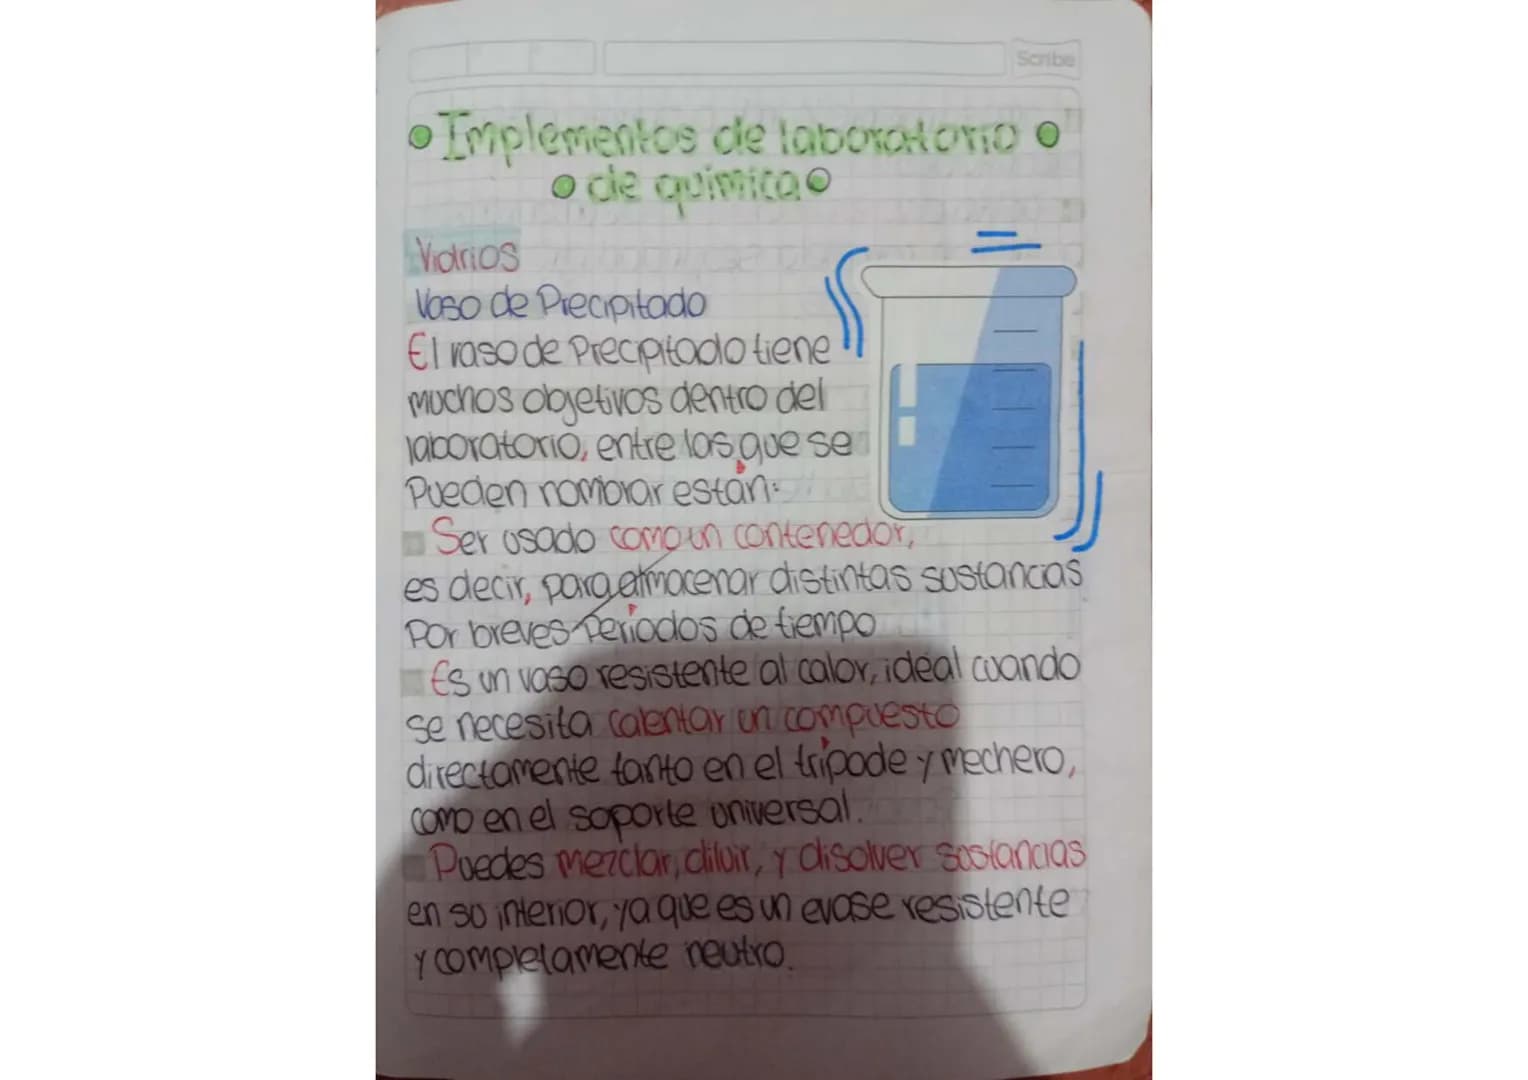 Scribe
• Implementos de laboratorio •
• de química •
Vidrios
Vaso de Precipitado
El vaso de Precipitado tiene
muchos objetivos dentro del
laboratorio, entre los que se
Pueden nombrar están:
Ser usado como un contenedor,
es decir, para almacenar distintas sustancias
Por breves Períodos de tiempo
Es un vaso resistente al calor, idéal cuando
se necesita calentar un compuesto
directamente tanto en el trípode y mechero,
como en el soporte universal.
Puedes mezclar, diluir, y disolver sustancias
en su interior, ya que es un evase resistente
y completamente neutro.